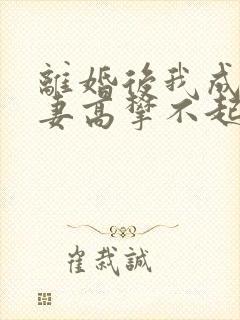 離婚後我成
妻高攀不起
崔栽誠